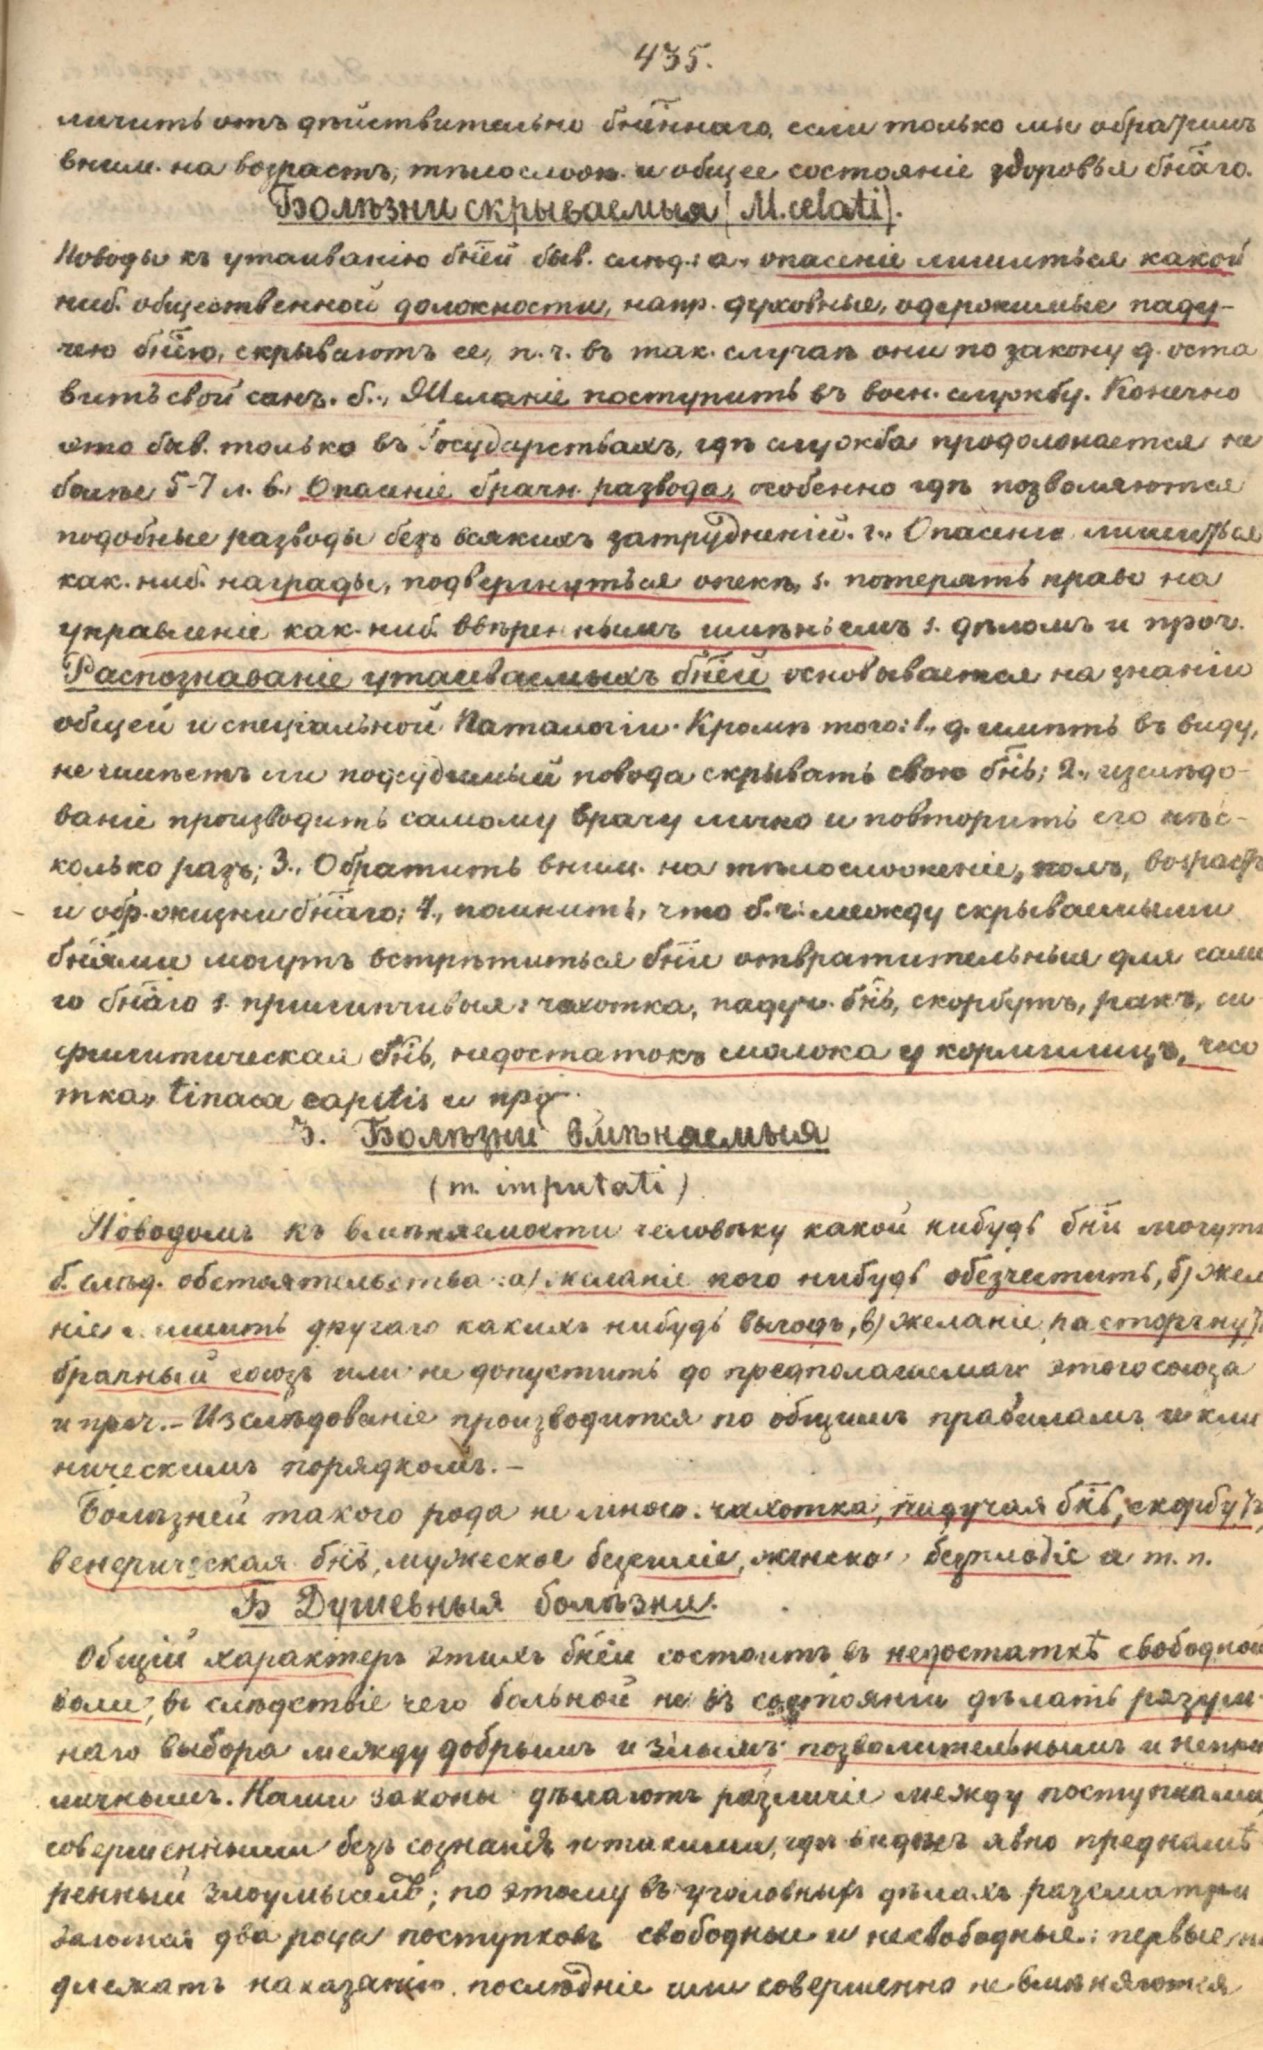 435.
личить отъ дѣйствительно бн̅наго, если только мы обратимъ
вним. на возрастъ, тѣлослож. и общее состояніе здоровья бн̅аго.
Болѣзни скрываемыя (M. celati).
Поводы къ утаиванію бн̅ей быв. слѣд.: а., опасеніе лишиться какой
ниб. общественной должности, напр. духовные, одержимые паду-
чею бн̅ію, скрываютъ ее, п. ч. въ так. случаѣ они по закону д. оста
вить свой санъ. б., Желаніе поступить въ воен. службу. Конечно
это быв. только въ Государствахъ, гдѣ служба продолжается не
болѣе 5-7 л. в., Опасеніе брачн. развода, особенно гдѣ позволяются
подобные разводы безъ всякихъ затрудненій. г., Опасеніе лишиться
как. ниб. награды, подвергнуться опекѣ, s. потерять право на
управленіе как. ниб. ввѣреннымъ имѣніемъ s. дѣломъ и проч.
Распознаваніе утаиваемыхъ бн̅ей основывается на знаніи
общей и спеціальной Паталогіи. Кромѣ того: 1., д. имѣть въ виду,
не имѣетъ ли подсудимый повода скрывать свою бн̅ь; 2., изслѣдо-
ваніе производить самому врачу лично и повторить его нѣс-
колько разъ; 3., Обратить вним. на тѣлосложеніе, полъ, возрастъ
и обр. жизни бн̅аго; 4., помнить, что б. ч. между скрываемыми
бн̅іями могутъ встрѣтиться бн̅и отвратительныя для сами
го бн̅аго s. прилипчивыя: чахотка, падуч. бн̅ь, скорбутъ, ракъ, си
филитическая бн̅ь, недостатокъ молока у кормилицъ, чесо
тка, tinaea capitis и проч.
3. Болѣзни вмѣняемыя
(m. imputati)
Поводомъ къ вмѣняемости человѣку какой нибудь бн̅и могутъ
б. слѣд. обстоятельства: а) желаніе кого нибудь обезчестить, б) жел
ніе лишить другаго какихъ нибудь выгодъ, в) желаніе расторгнуть
брачный союзъ или не допустить до предполагаемаго этого союза
и проч. – Изслѣдованіе производится по общимъ правиламъ и кли
ническимъ порядкомъ. –
Болѣзней такого рода не много: чахотка, падучая бн̅ь, скорбутъ,
венерическая бн̅ь, мужеское безсиліе, женско безплодіе и т. п.
Б Душевныя болѣзни.
Общій характеръ этихъ бн̅ей состоитъ въ недостаткѣ свободной
воли, в слѣдствіе чего больной не въ состояніи дѣлать разум-
наго выбора между добрымъ и злымъ позволительнымъ и непри
личнымъ. Наши законы дѣлаютъ различіе между поступками,
совершенными безъ сознанія и такими, гдѣ виденъ явно преднамѣ
ренный злоумыселъ; по этому въ уголовныхъ дѣлахъ разсматри
ваются два рода поступковъ свободные и несвободные: первые по
длежатъ наказанію, послѣдніе или совершенно не вмѣняются